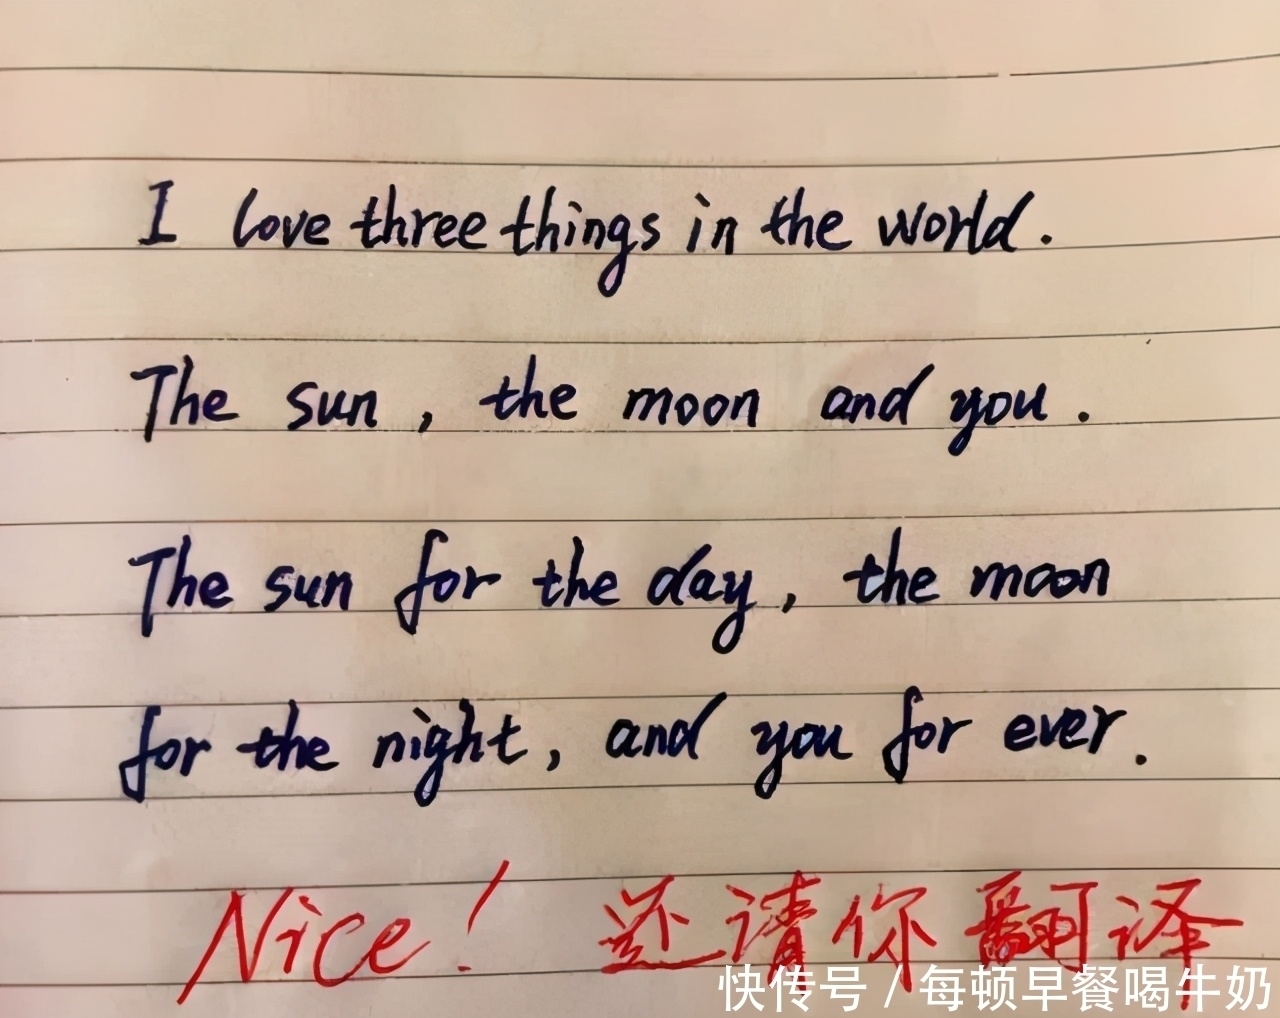 I love three things in the world.
The sun, the moon and you.
The sun for the day, the moon
for the night, and you for ever.
Nice! 还请你翻译
快传号/每顿早餐喝牛奶